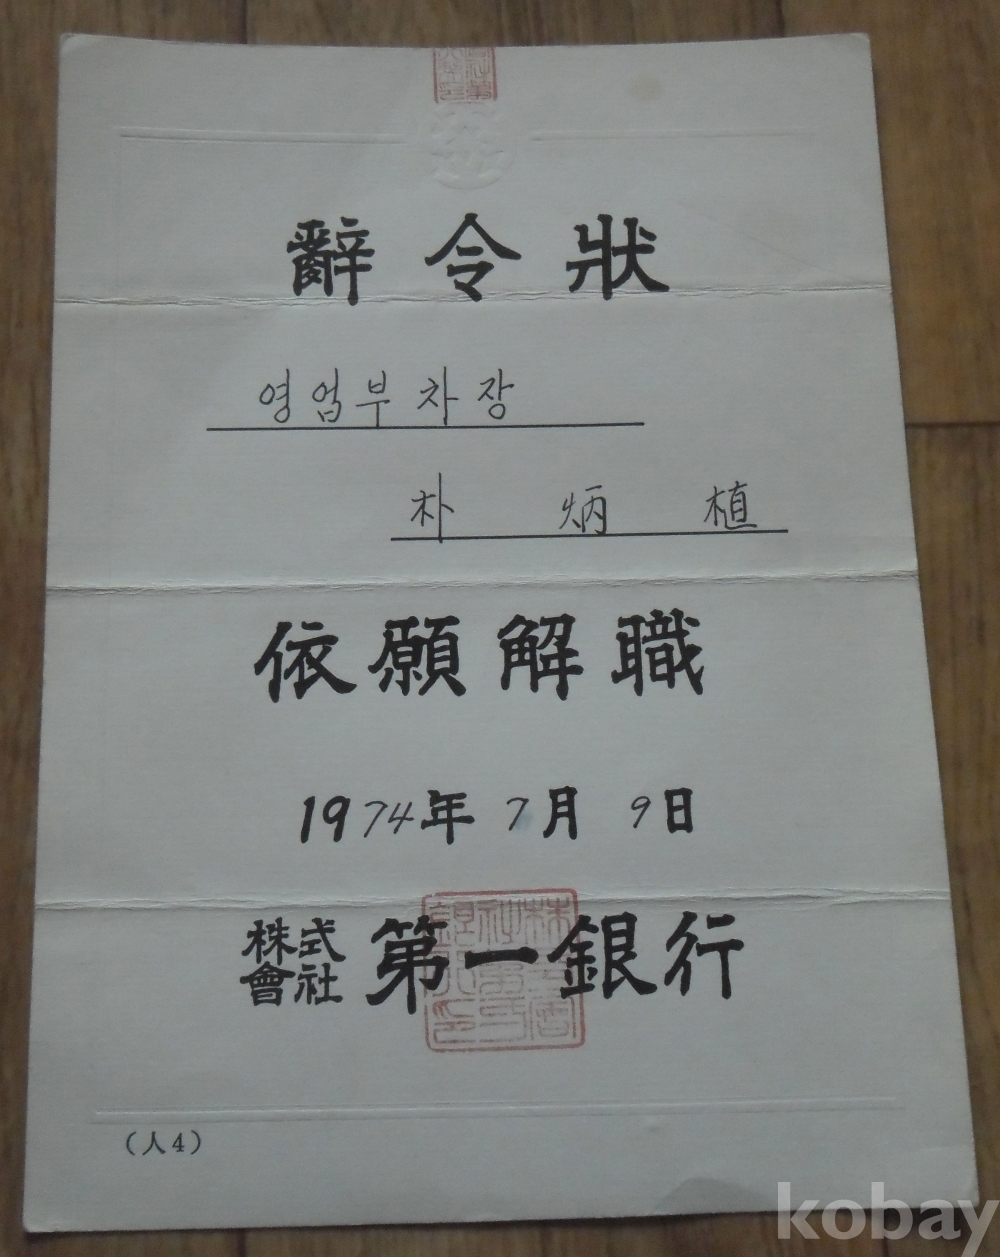 辭令狀
영업부차장
朴 炳 植
依願解職
1974年 7月 9日
株式會社 第一銀行
(人4)
kobay